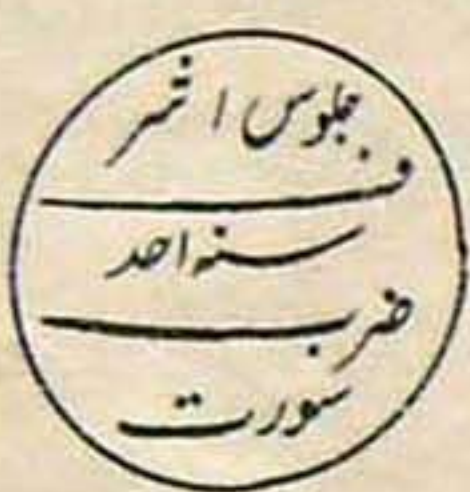 جلوس اشر
ف
سنه احد
ضرب
سورت